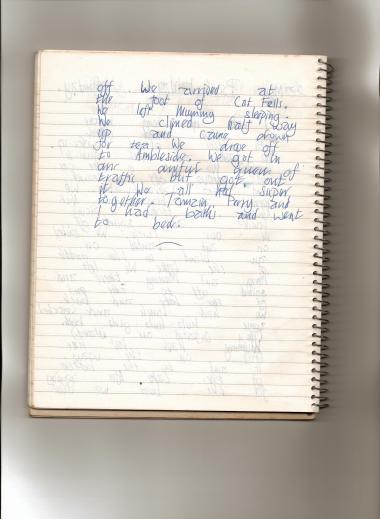 off We arrived at
the foot of Cat Fells.
We left Mummy sleeping.
We climed half way
up and came down
for tea. We drove off
to Ambleside. We got in
an awful queue of
traffic but got out
it. We all had super
together. Tamzin, Perry and
I had baths and went
to bed.